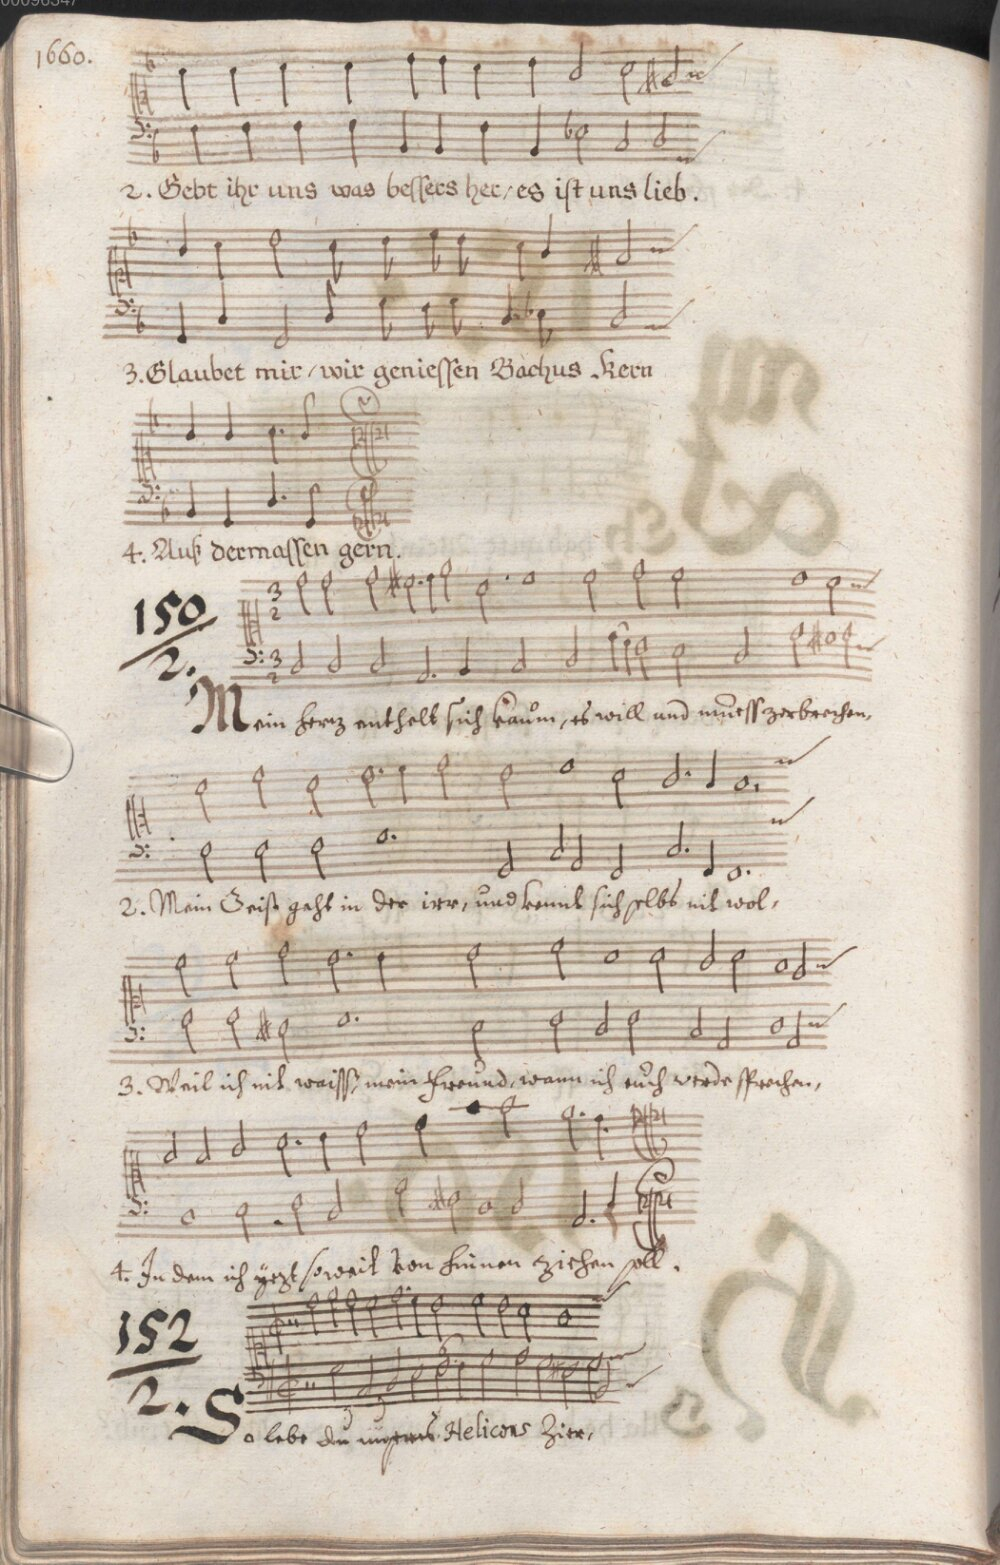 00096347
1660.
2. Gebt ihr uns was bessers her, es ist uns lieb.
3. Glaubet mir, wir geniessen Bachus Kern
4. Auß dermassen gern.
150
2.
Mein herz enthelt sich kaum, es will und muess zerbrechen,
2. Mein Geist geht in der irr, und kennt sich selbs nit wol,
3. Weil ich nit waiss, mein Freund, wann ich euch werde sprechen,
4. In dem ich yezt so weit von hinnen ziehen soll.
152
2.
So lebe du Helicons Zier,